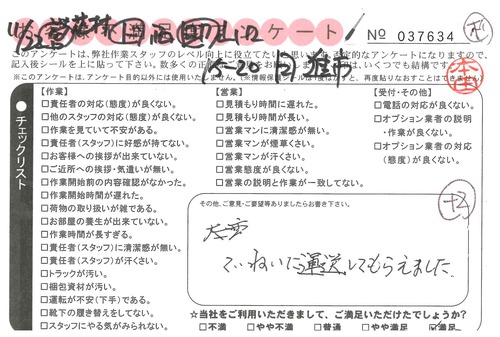 ケート！
№ 037634
このアンケートは、弊社作業スタッフのレベル向上に役立てたい
記入後シールを上に貼って下さい。
【作業】
□責任者の対応(態度)が良くない。
□他のスタッフの対応(態度)が良くない。
□作業を見ていて不安がある。
□責任者(スタッフ)に好感が持てない。
□お客様への挨拶が出来ていない。
□ご近所への挨拶・気遣いが無い。
□作業開始前の内容確認がなかった。
□作業開始時間が遅れた。
□荷物の取り扱いが雑である。
□お部屋の養生が出来ていない。
□作業時間が長すぎる。
□責任者(スタッフ)に清潔感が無い。
□責任者(スタッフ)が汗くさい。
□トラックが汚い。
□梱包資材が汚い。
□運転が不安(下手)である。
□靴下の履き替えをしてない。
□スタッフにやる気がみられない。
【営業】
□見積もり時間に遅れた。
□見積もり時間が長い。
□営業マンに清潔感が無い。
□営業マンが煙草くさい。
□営業マンが汗くさい。
□営業態度が良くない。
□営業の説明と作業が一致してない。
【受付・その他】
□電話の対応が良くない。
□オプション業者の説明
・作業が良くない。
□オプション業者の対応
(態度)が良くない。
チェックリスト
その他、ご意見・ご要望等ありましたらお書き下さい。
大変
ていねいに運送してもらえました。
☆当社をご利用いただきまして、ご満足いただけたでしょうか？
□不満 □やや不満 □普通 □やや満足 ☑満足